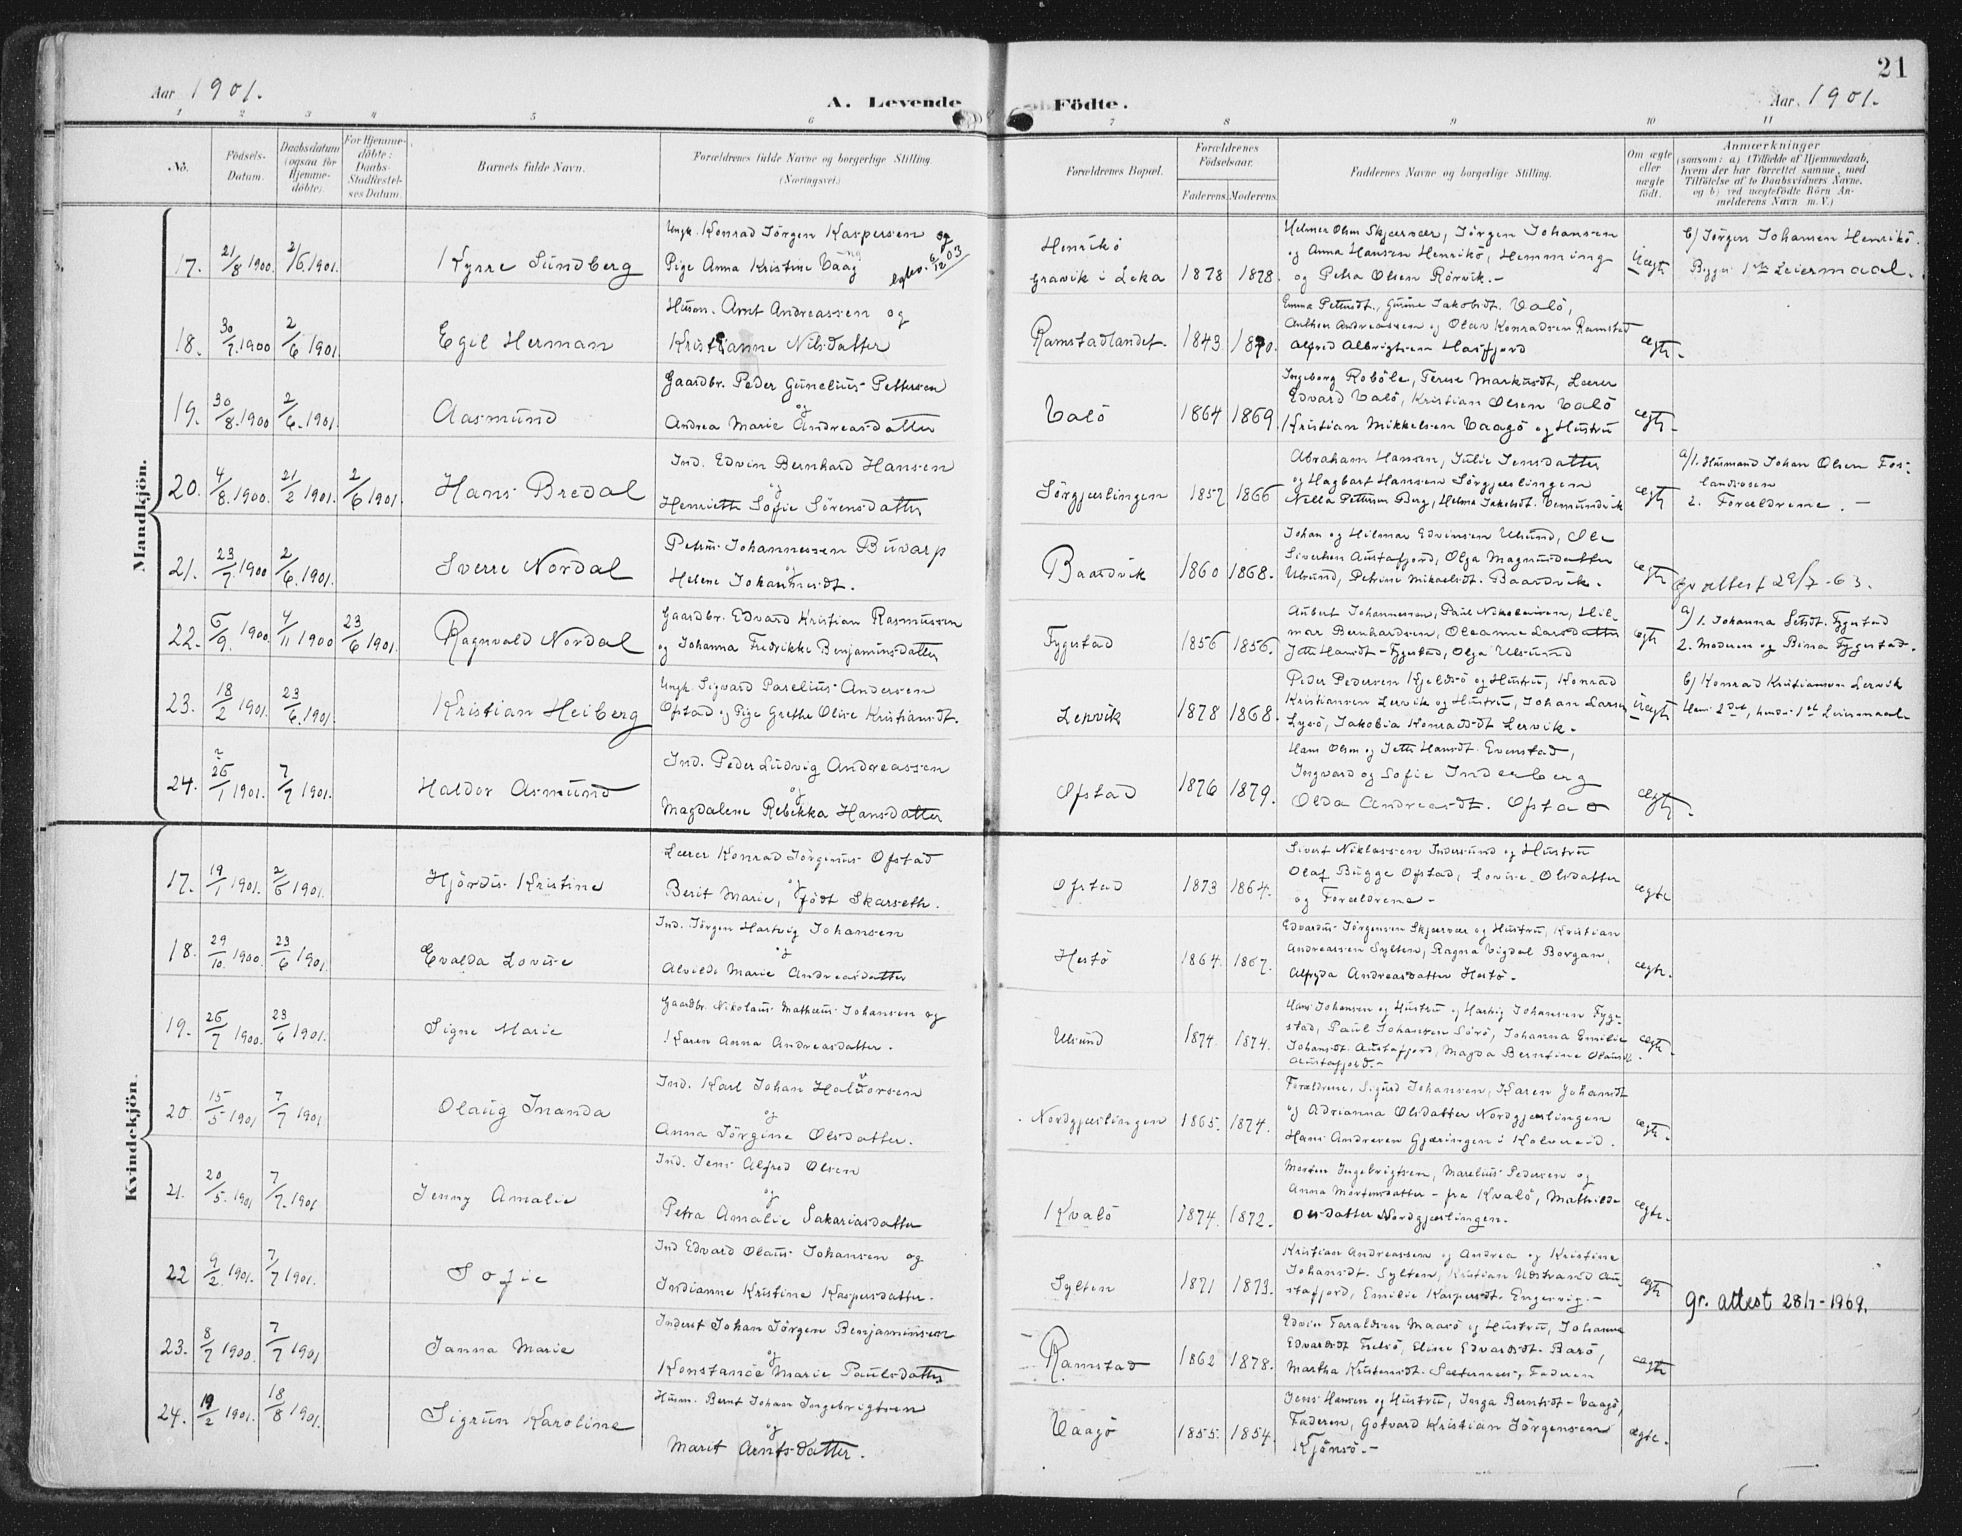 Aar 1901.
A. Levende Födte.
Aar 1901.
21
1 2 3 4 5 6 7 8 9 10 11
No.
Födsels-Datum.
Daabsdatum (ogsaa for Hjemme-döbte).
For Hjemme-döbte: Daabs-Stadfæstel-ses Datum.
Barnets fulde Navn.
Forældrenes fulde Navne og borgerlige Stilling. (Næringsvei.)
Forældrenes Bopæl.
Forældrenes Födselsaar.
Faderens. Moderens.
Faddernes Navne og borgerlige Stilling.
Om ægte eller uægte födt.
Anmærkninger (saasom: a) i Tilfælde af Hjemmedaab, hvem der har forrettet samme, med Tilföielse af to Daabsvidners Navne, og b) ved uægtefödte Börn An-melderens Navn m. V.)
Mandkjön.
17. 21/8 1900. 2/6 1901. Kyrre Sundberg
Ungk. Konrad Jörgen Kaspersen og
Pige Anna Kristine Vaag
6/12 03
Henrikö
Gravik i Leka 1878 1878.
Helmer Olsen Skjærvær, Jörgen Johansen
og Anna Hansen Henrikö, Hemming
og Petra Olsen Rörvik.-
Uægte
b/ Jörgen Johansen Henrikö.
Begges 1ste Leiermaal.
18. 30/7 1900 2/6 1901. Egil Herman
Husm. Arnt Andreassen og
Kristianne Nilsdatter
Ramstadlandet. 1843 1870.
Emma Pettersdt., Gurine Jakobsdt. Valö,
Anthon Andreassen og Olav Konradsen Ramstad
Alfred Albrigtsen Hasfjord
ægte.
19. 30/8 1900 2/6 1901. Aasmund
Gaardbr. Peder Gunelius Pettersen
og
Andrea Marie Andreasdatter
Valö 1864 1869.
Ingeborg Roböle, Terese Markusdt, Lærer
Edvard Valö, Kristian Olsen Valö
Kristian Mikkelsen Vaagö og Hustru
ægte.
20. 4/8 1900. 21/2 1901. 2/6 1901. Hans Bredal
Ind. Edvin Bernhard Hansen
og
Henriette Sofie Sörensdatter
Sörgjæslingen 1857 1866
Abraham Hansen, Julie Jensdatter
og Hagbart Hansen Sörgjæslingen
Nella Pettersen Berg, Helma Jakobsdt.
ægte
a/ 1. Husmand Johan Olsen Fos-
landsosen
2. Forældrene. -
21. 23/7 1900 2/6 1901. Sverre Nordal
Petrus Johannessen Buvarp
og
Helene Johannesdt.
Baardvik 1860 1868.
Johan og Hilmar Edvinsen Ulsund, Ole
Sivertsen Austafjord, Olga Magnusdatter
Ulsund, Petrine Mikaelsdt. Baardvik.
ægte
gr attest 29/7-63.
22. 6/9 1900. 4/11 1900 23/6 1901. Ragnvald Nordal
Gaardbr. Edvard Kristian Rasmussen
og Johanna Fredrikke Benjaminsdatter
Fygestad 1856 1856.
Aubert Johannessen, Paul Nikolaisen, Hil-
mar Bernhardsen, Oleanne Larsdatter
Jette Hansdt- Fygestad, Olga Ulsund
ægte
a/ 1. Johanna Fygestad
2. Moderen og Bina Fygestad.
23. 18/2 1901. 23/6 1901. Kristian Heiberg
Ungk. Sigvard Parelius Andersen
Ofstad og Pige Grethe Olive Kristiansdt.
Lervik 1878 1868.
Peder Pedersen Kjeldsö og Hustru, Konrad
Kristiansen Lervik og Hustru, Johan Larsen
Lysö, Jakobia Konradsdt Lervik.
Uægte
b/ Konrad Kristiansen Lervik
Hans 2det, hendes 1ste Leiermaal.
24. 26/1 1901. 7/7 1901. Haldor Asmund
Ind. Peder Ludvig Andreassen
og
Magdalene Rebekka Hansdatter
Ofstad 1876 1879.
Hans Olsen og Jette Hansdt. Evenstad,
Ingvard og Sofie Inderberg
Olda Andreasdt. Ofstad
ægte.
Kvindekjön.
17. 19/1 1901. 2/6 1901. Hjördis Kristine
Lærer Konrad Jörgenius Ofstad
og
Berit Marie, födt Skarseth.
Ofstad 1873 1864.
Sivert Niklassen Indersund og Hustru
Olaf Bugge Ofstad, Lovise Olsdatter
og Forældrene-
ægte
18. 29/10. 1900. 23/6 1901. Evalda Lovise
Ind. Jörgen Hartvig Johansen
og
Alvilde Marie Andreasdatter
Hestö 1864. 1867.
Edvardus Jörgensen Skjærvær og Hustru, Kristian
Andreassen Sylten, Ragna Vigdal Borgan,
Alfryda Andreasdatter Hestö.
ægte.
19. 26/7 1900. 23/6 1901. Signe Marie
Gaardbr. Nikolaus Mathæus Johansen og
Karen Anna Andreasdatter.
Ulsund 1874. 1874.
Hans Johansen og Hustru og Hartvig Johansen Fyge-
stad, Paul Johansen Sörö, Johanna Emilie
Johansdt. Austafjord, Magda Berntine Olausdt.
Austafjord.-
ægte.
20 15/5 1901 7/7 1901 Olaug Inanda
Ind. Karl Johan Halvorsen
og
Anna Jörgine Olsdatter.
Nordgjæslingen 1865. 1874.
Forældrene, Sigurd Johansen, Karen Johansdt
og Adrianna Olsdatter Nordgjæslingen
Hans Andresen Gjæringen i Kolvereid.
ægte.
21. 20/5. 1901 7/7. 1901 Jenny Amalie
Ind. Jens Alfred Olsen
og
Petra Amalie Sakariasdatter
Kvalö 1874. 1872.
Morten Ingebrigtsen, Marelius Pedersen og
Anna Mortensdatter - fra Kvalö, Mathilde
Olsdatter Nordgjæslingen.
ægte.
22 9/2 1901. 7/7 1901. Sofie
Ind Edvard Olaus Johansen og
Indianne Kristine Kaspersdatter.
Sylten 1871 1873.
Kristian Andreassen og Andrea og Kristine
Johansdt. Sylten, Kristian Udstrand Au-
stafjord, Emilie Kaspersdt. Engesvig.-
ægte
gr. attest 28/1-1969.
23. 8/7 1900. 7/7 1901 Janna Marie
Inderst Johan Jörgen Benjaminsen
og
Konstanse Marie Paulsdatter
Ramstad 1862 1878.
Edvin Taraldsen Maarö og Hustru, Johanne
Edvardsdt, Eline Edvardsdt. Barö,
Martha Kristensdt. Sæternes, Faderen
ægte
24. 19/2 1901. 18/8 1901. Sigrun Karoline
Husm. Bernt Johan Ingebrigtsen
og
Marit Arntsdatter.
Vaagö 1855. 1854.
Jens Hansen og Hustru, Inga Berntsdt- Vaagö,
Faderen, Gotvard Kristian Jörgensen
Kjönsö.-
ægte.